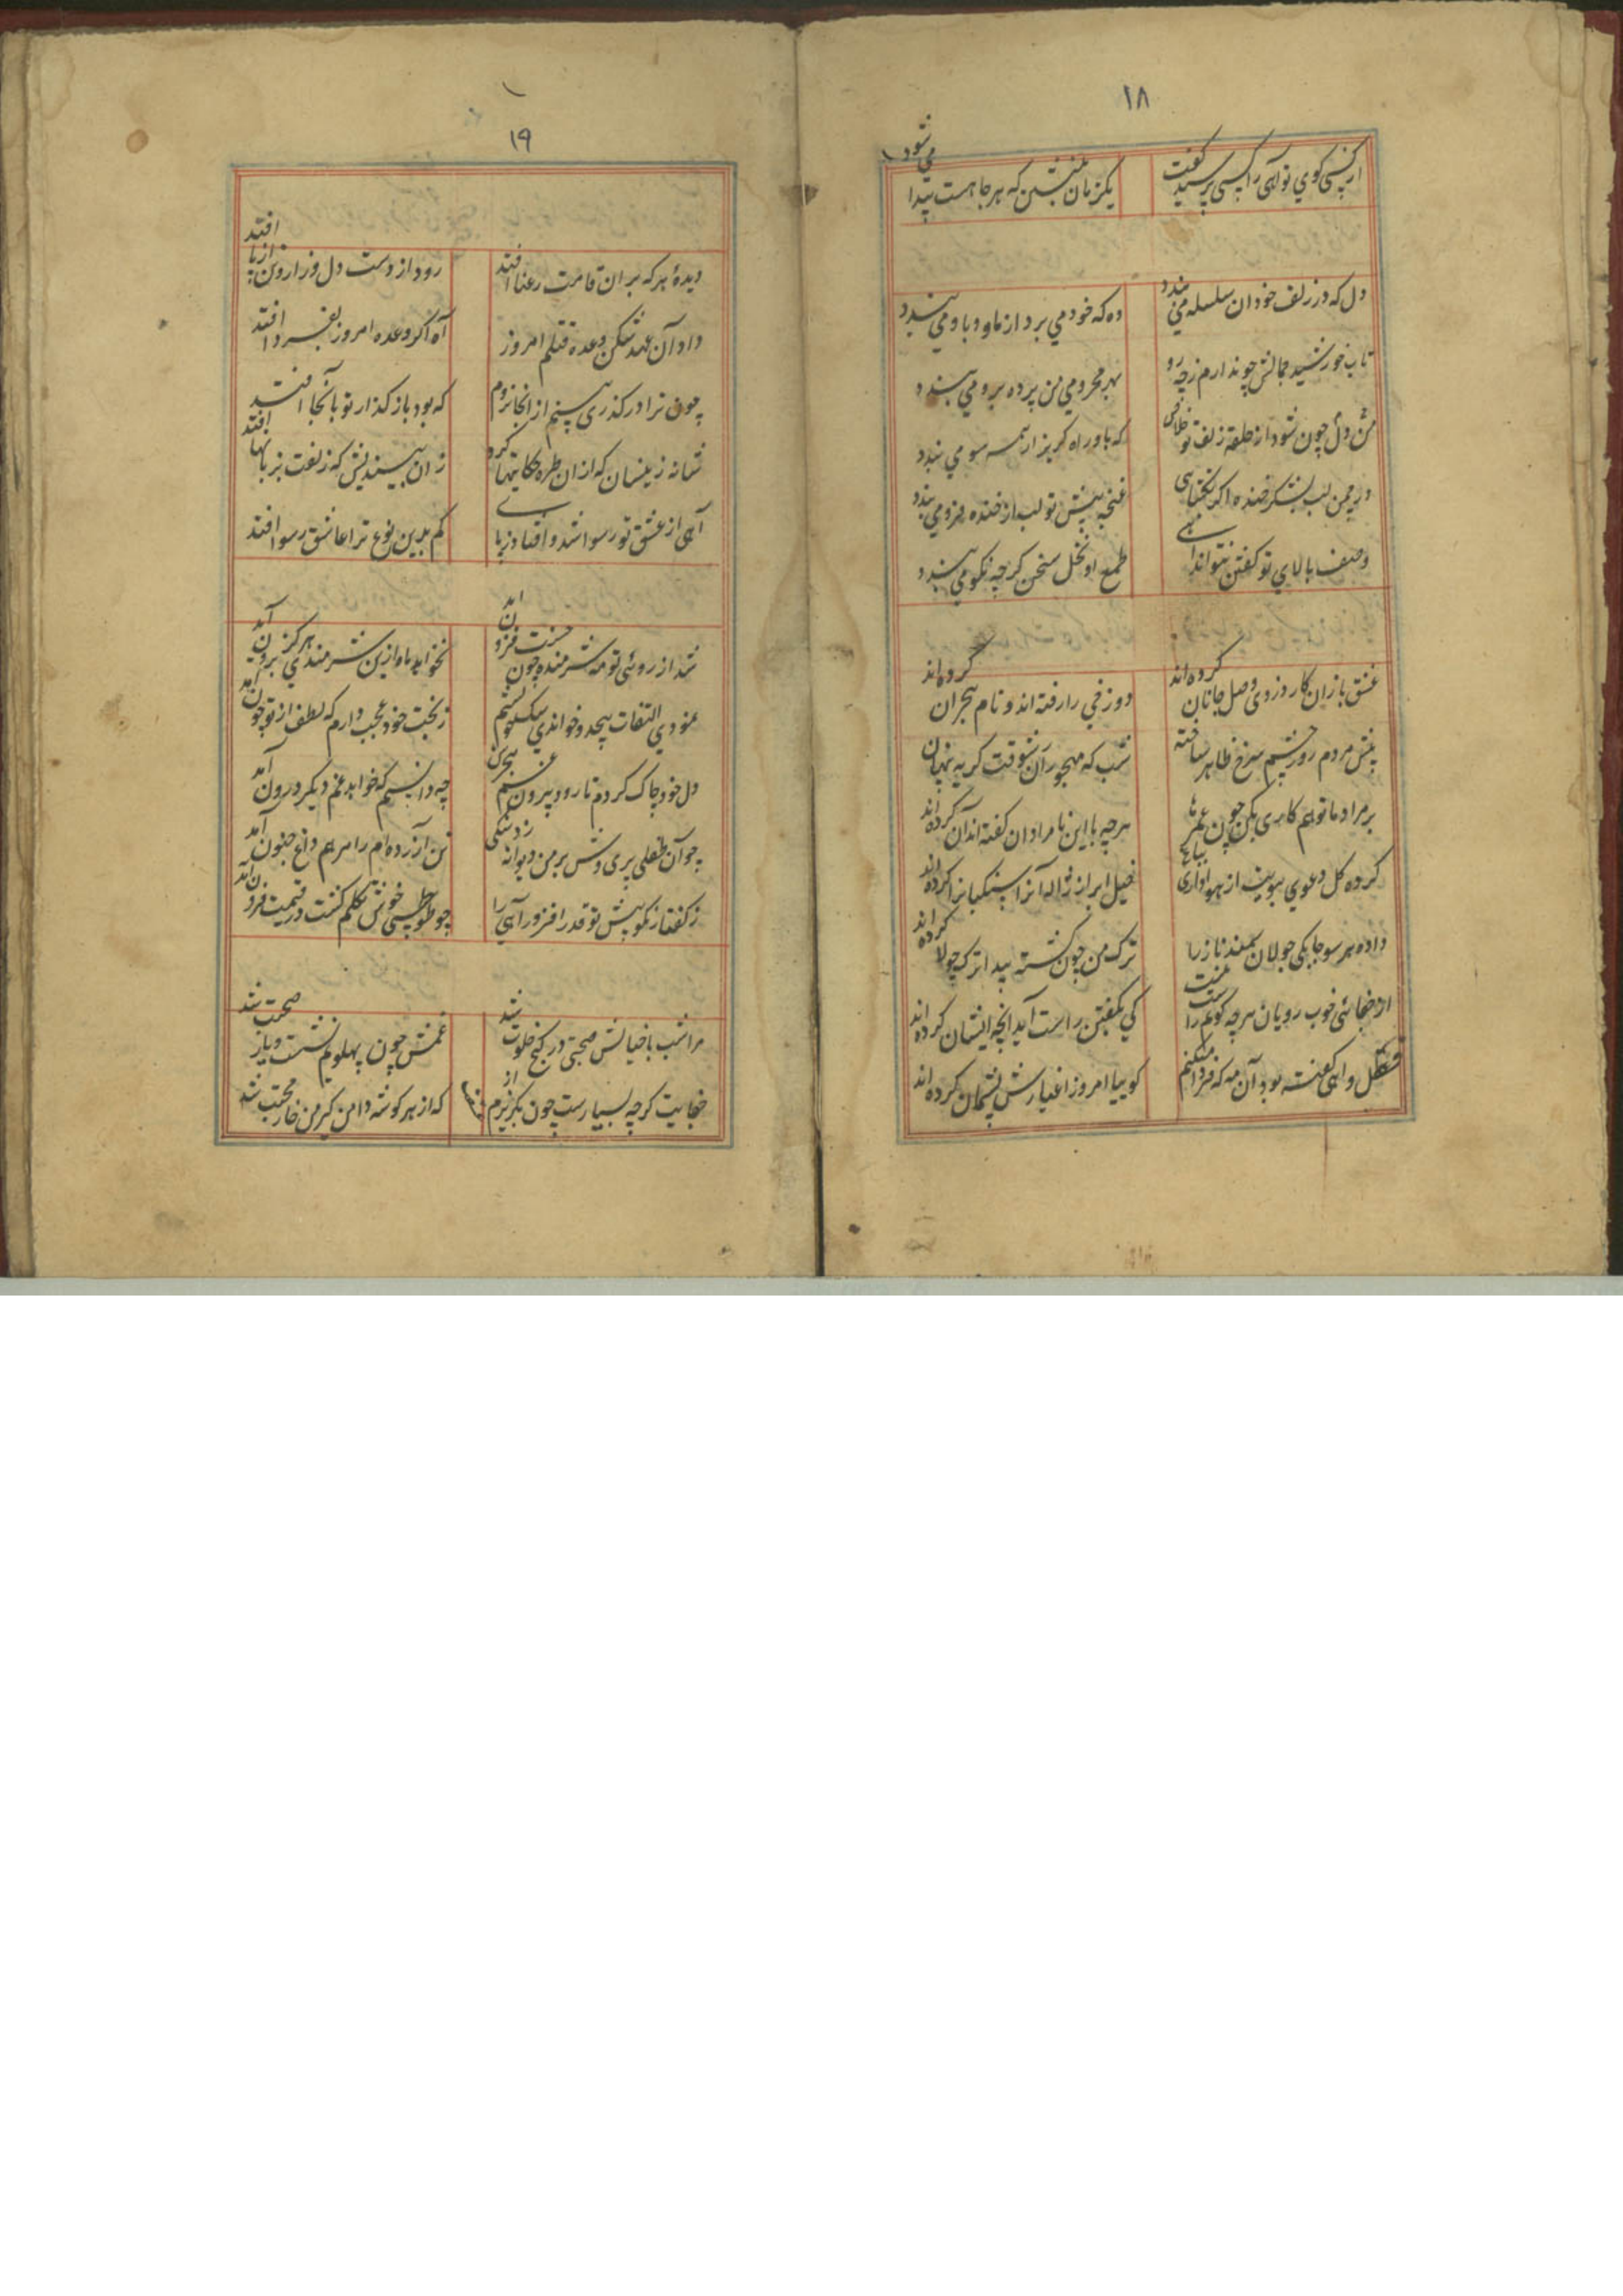 ۱۸
از سگ کوی تو آهی را کسی پرسید گفت
یکزمان بنشین که هر جا هست پیدا می شود
دل که در زلف خود آن سلسله مو می بندد
وه که خود می برد از ما و با و می بندد
تاب خورشید جمالش چو ندارم ز چه رو
بهر محرومی من پرده برو می بندد
دل چون شود از حلقه زلف تو خلاص
که باو راه کریز از همه سو می بندد
در چمن لب بشکر خنده اگر بگشایی
غنچه پیش تو لب از خنده فرو می بندد
وصف بالای تو گفتن نتواند آهی
طمع او نخل سخن گرچه نکو می بندد
عشق بازان کار و زدی وصل جانان کرده اند
دوزخی را رفته اند و نام هجران کرده اند
پیش مردم روز چشم سرخ ظاهر ساخته
شب که مهجوران شوقت گریه پنهان کرده اند
بر مراد ما تو هم کاری بکن چون عمرها
هرچه با این نامرادان گفته اند آن کرده اند
کرده گل دعوی ببویت از هواداری باغ
خیل ابر از ژاله آنرا سنگباران کرده اند
داده هر سو چابکی جولان سمند ناز را
ترک من چون گشته پیدا ترک جولان کرده اند
از جفائی خوب رویان هرچه گویم راست نیست
کی بگفتن راست آید آنچه ایشان کرده اند
قتل آهی گفته بود آن مه که فردا میکنم
گوییا امروز اغیارش پشیمان کرده اند
۱۹
دیدهٔ هر که بر ان قامت رعنا افتد
رود از دست دل و زار وین از پا افتد
داد آن عهد شکن وعده قتلم امروز
آه اگر وعده امروز بفردا افتد
چون ترا در گذری بینم از انجا نروم
که بود باز گذار تو بآنجا افتد
شانه زینسان که از ان طره حکایتها کرد
زان بیندیش که زلفت بزبانها افتد
آهی از عشق تو رسوا شد و افتاد ز پا
کم بدین نوع ترا عاشق رسوا افتد
شد از روئی تو مه شرمنده چون حسنت فزون آمد
نخواهد ماه ازین شرمندگی هرگز برون آمد
نمودی التفات بیحد و خواندی سگ کویم
ز بخت خود عجب دارم که لطف از تو چون آمد
دل خود چاک کردم تا رود بیرون غم هجرش
چه دانستم که خواهد غم دیگر درون آمد
چو آن طفلی پری وش بر من دیوانه زد سنگی
تن آزرده ام را مرهم داغ جنون آمد
ز گفتار نکو پیش تو قدر افزود آهی را
چو طوطی خوش تکلم گشت در قیمت فزون آمد
مرا شب با خیالش صحبتی در کنج خلوت شد
غمش چون پهلویم بنشست و باز صحبت شد
جفایت گرچه بسیارست چون بگریزم از
که از هر گوشه دامن گیر من خار محبت شد